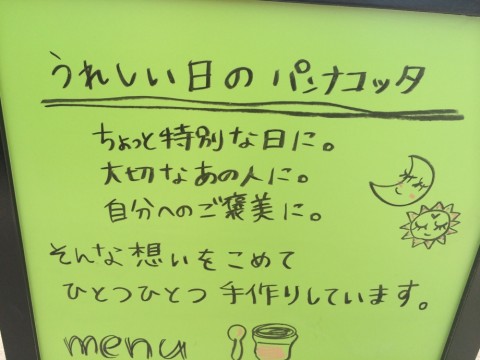 うれしい日のパンナコッタ
ちょっと特別な日に。
大切なあの人に。
自分へのご褒美に。
そんな想いをこめて
ひとつひとつ手作りしています。
menu